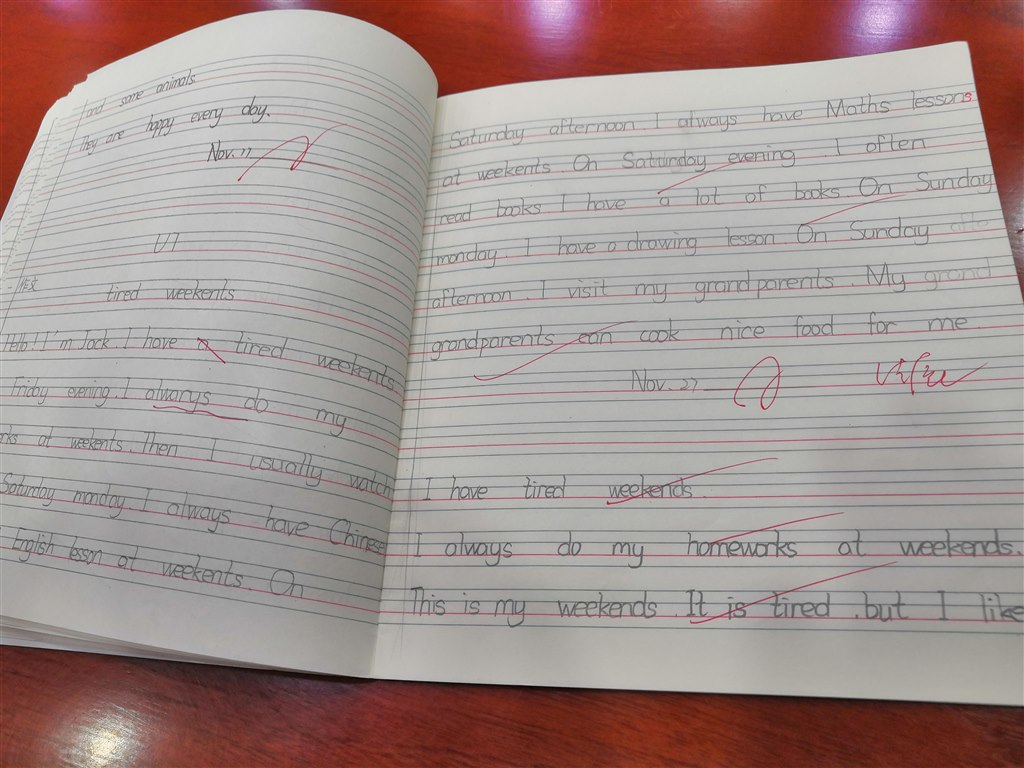 and some animals.
They are happy every day.
Nov. 22
U7
tired weekents
Hello! I'm Jack. I have a tired weekents
Friday evening. I alwarys do my
at weekents. Then I usually watch
Saturday monday. I always have Chinese
English lesson at weekents. On
Saturday afternoon. I always have Maths lessons
at weekents. On Saturday evening. I often
read books. I have a lot of books. On Sunday
monday. I have a drawing lesson. On Sunday
afternoon. I visit my grandparents. My grand
grandparents can cook nice food for me.
Nov. 27
I have tired weekends.
I always do my homeworks at weekends.
This is my weekends. It is tired. but I like